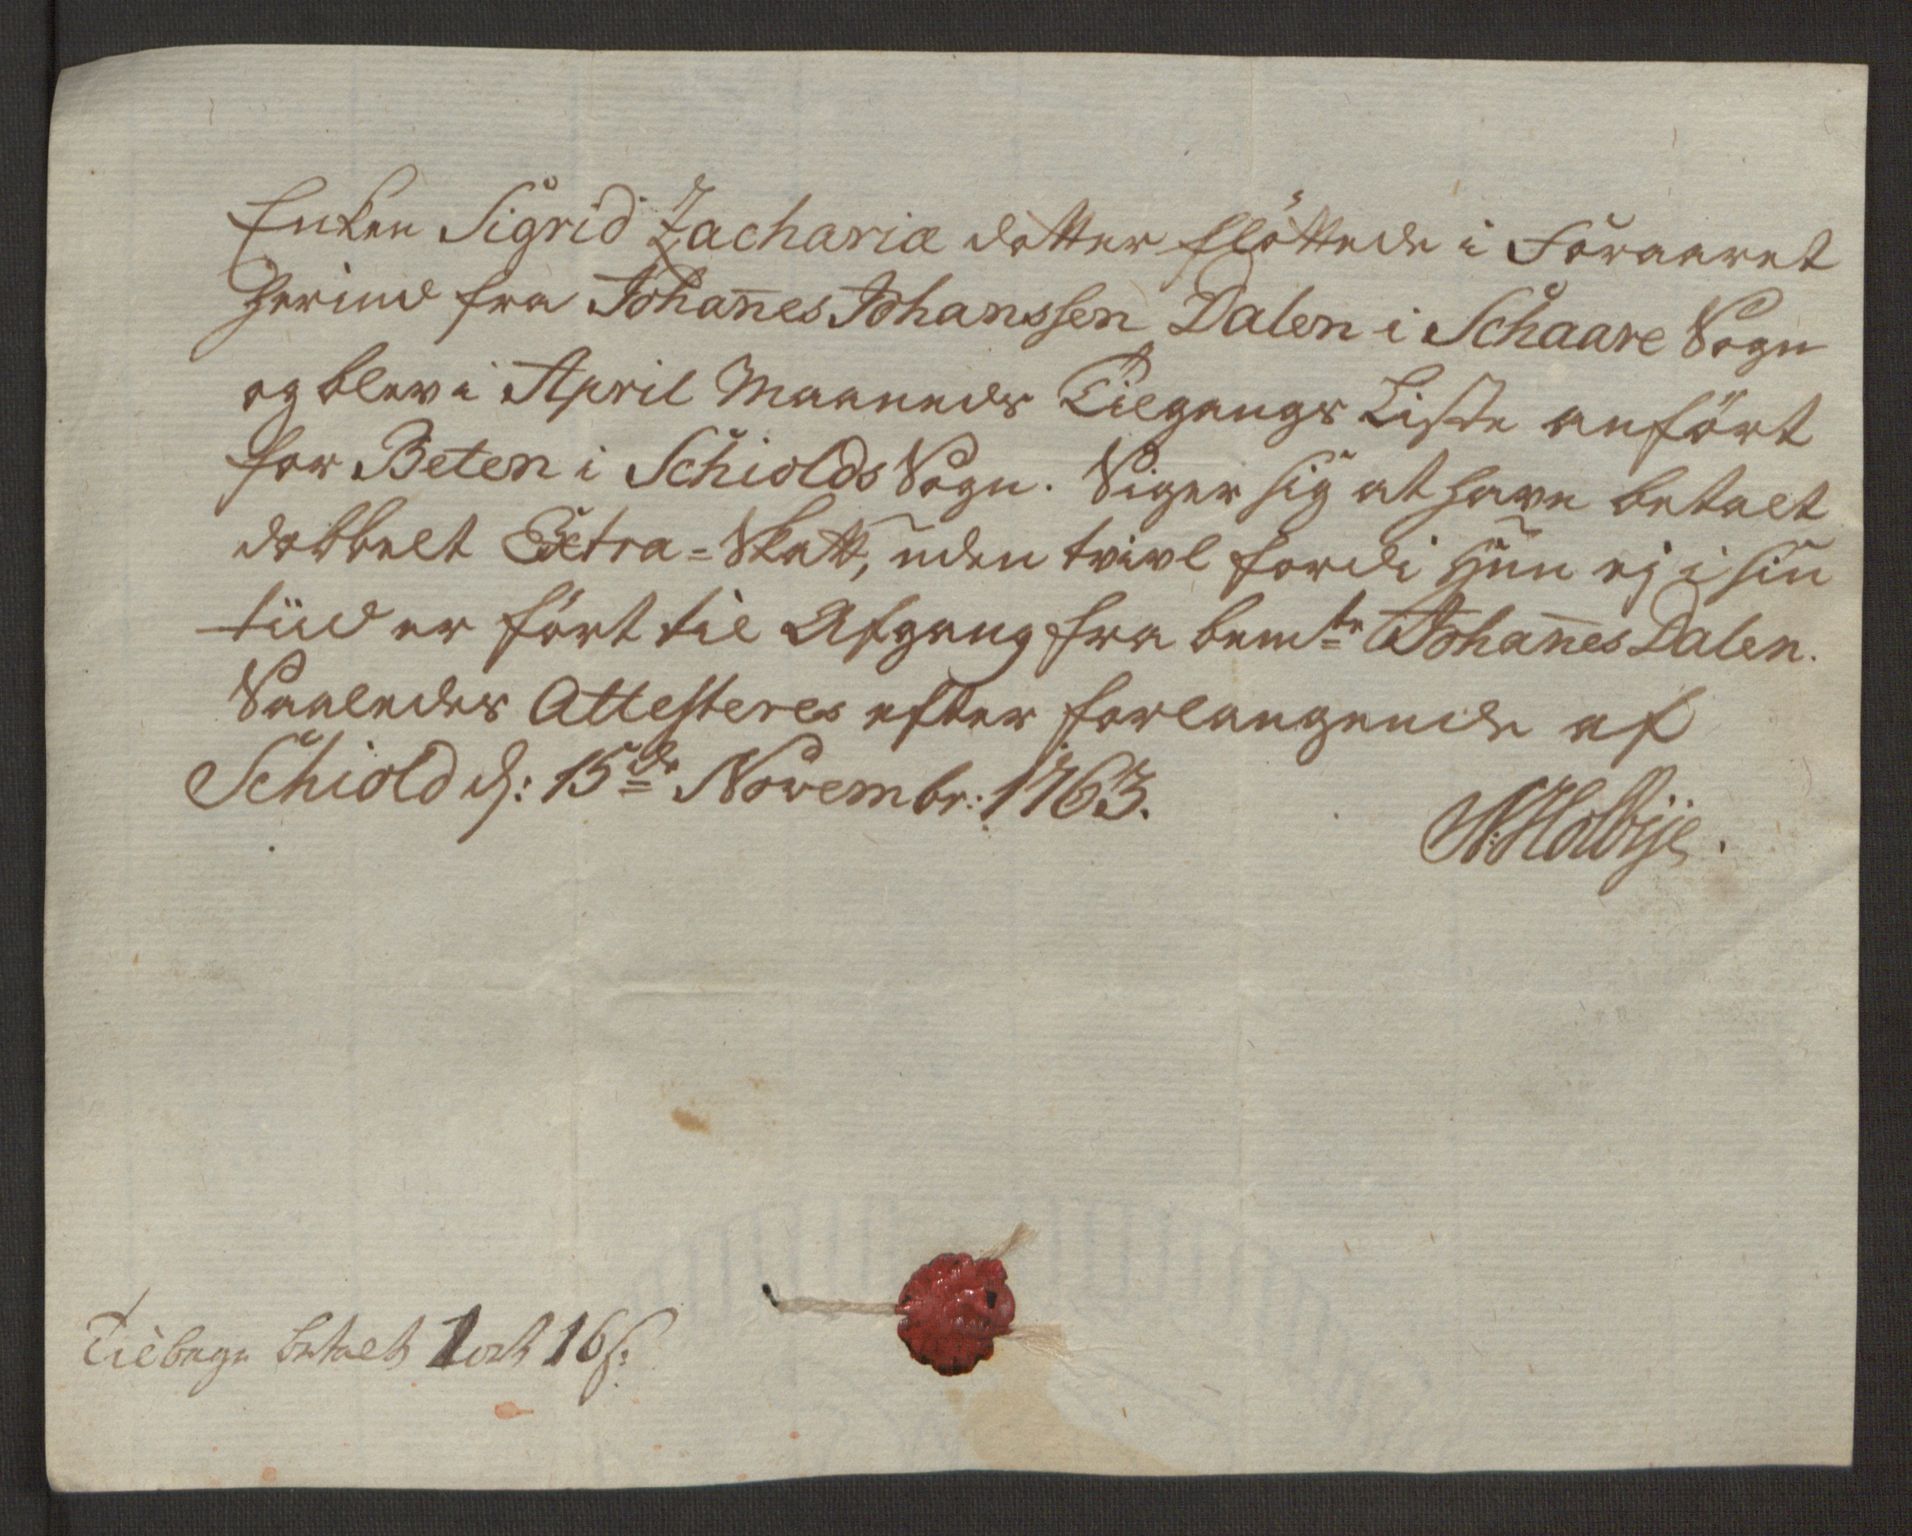 Enken Sigrid Zachariæ dotter flöttede i Foraaret
herind fra Johan̄es Johanssen Dalen i Schaare Sogn
og blev i April Maaneds Tilgangs Liste anfört
for Beten i Schiolds Sogn. Siger sig at have betalt
dobbelt Extra-Skatt, uden tvivl fordi hun ej i sin
tiid er fört til Afgang fra bemte Johan̄es Dalen.
Saaledes Attesteres efter forlangende af
Schiold d: 15de Novembr: 1763.
Tilbage betalt 1 ort 16 s: